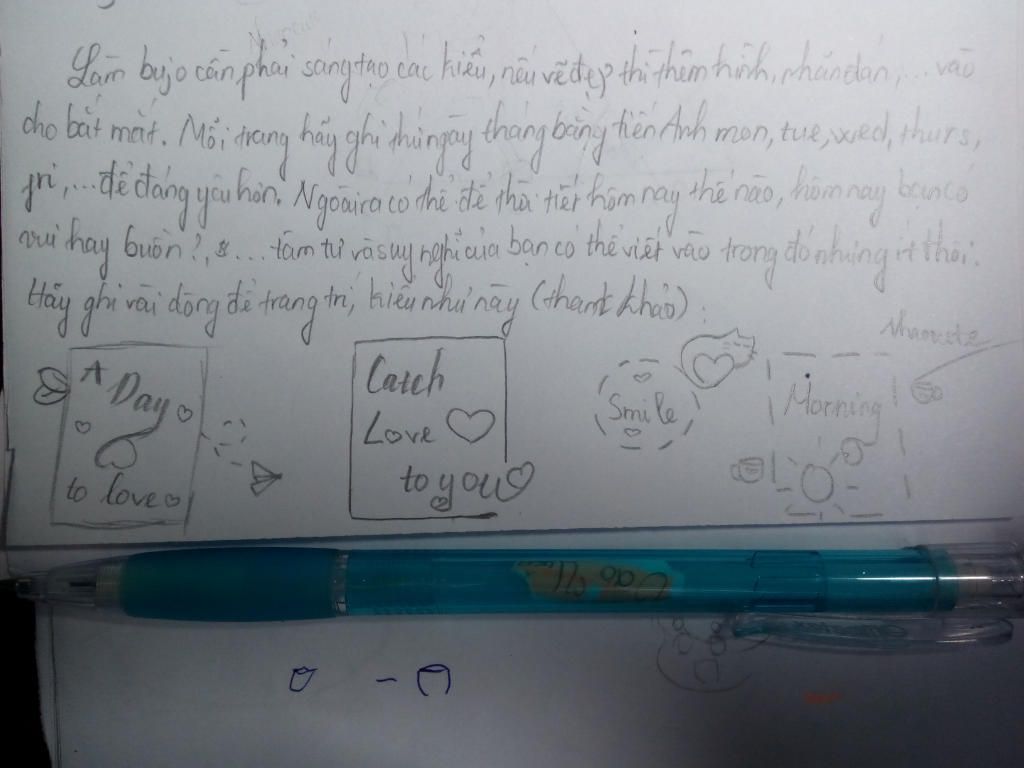 Làm bujo cần phải sáng tạo các kiểu, nếu vẽ đẹp thì thêm hình, nhãn dán,... vào
cho bắt mắt. Mỗi trang hãy ghi thứ ngày tháng bằng tiến Anh mon, tue, wed, thurs,
fri,... để đáng yêu hơn. Ngoài ra có thể để thời tiết hôm nay thế nào, hôm nay bạn có
vui hay buồn?, ... tâm tư và suy nghĩ của bạn có thể viết vào trong đó nhưng ít thôi.
Hãy ghi vài dòng để trang trí, kiểu như này (tham khảo):
A
Day
to love
Catch
Love
to you
Smile
Morning